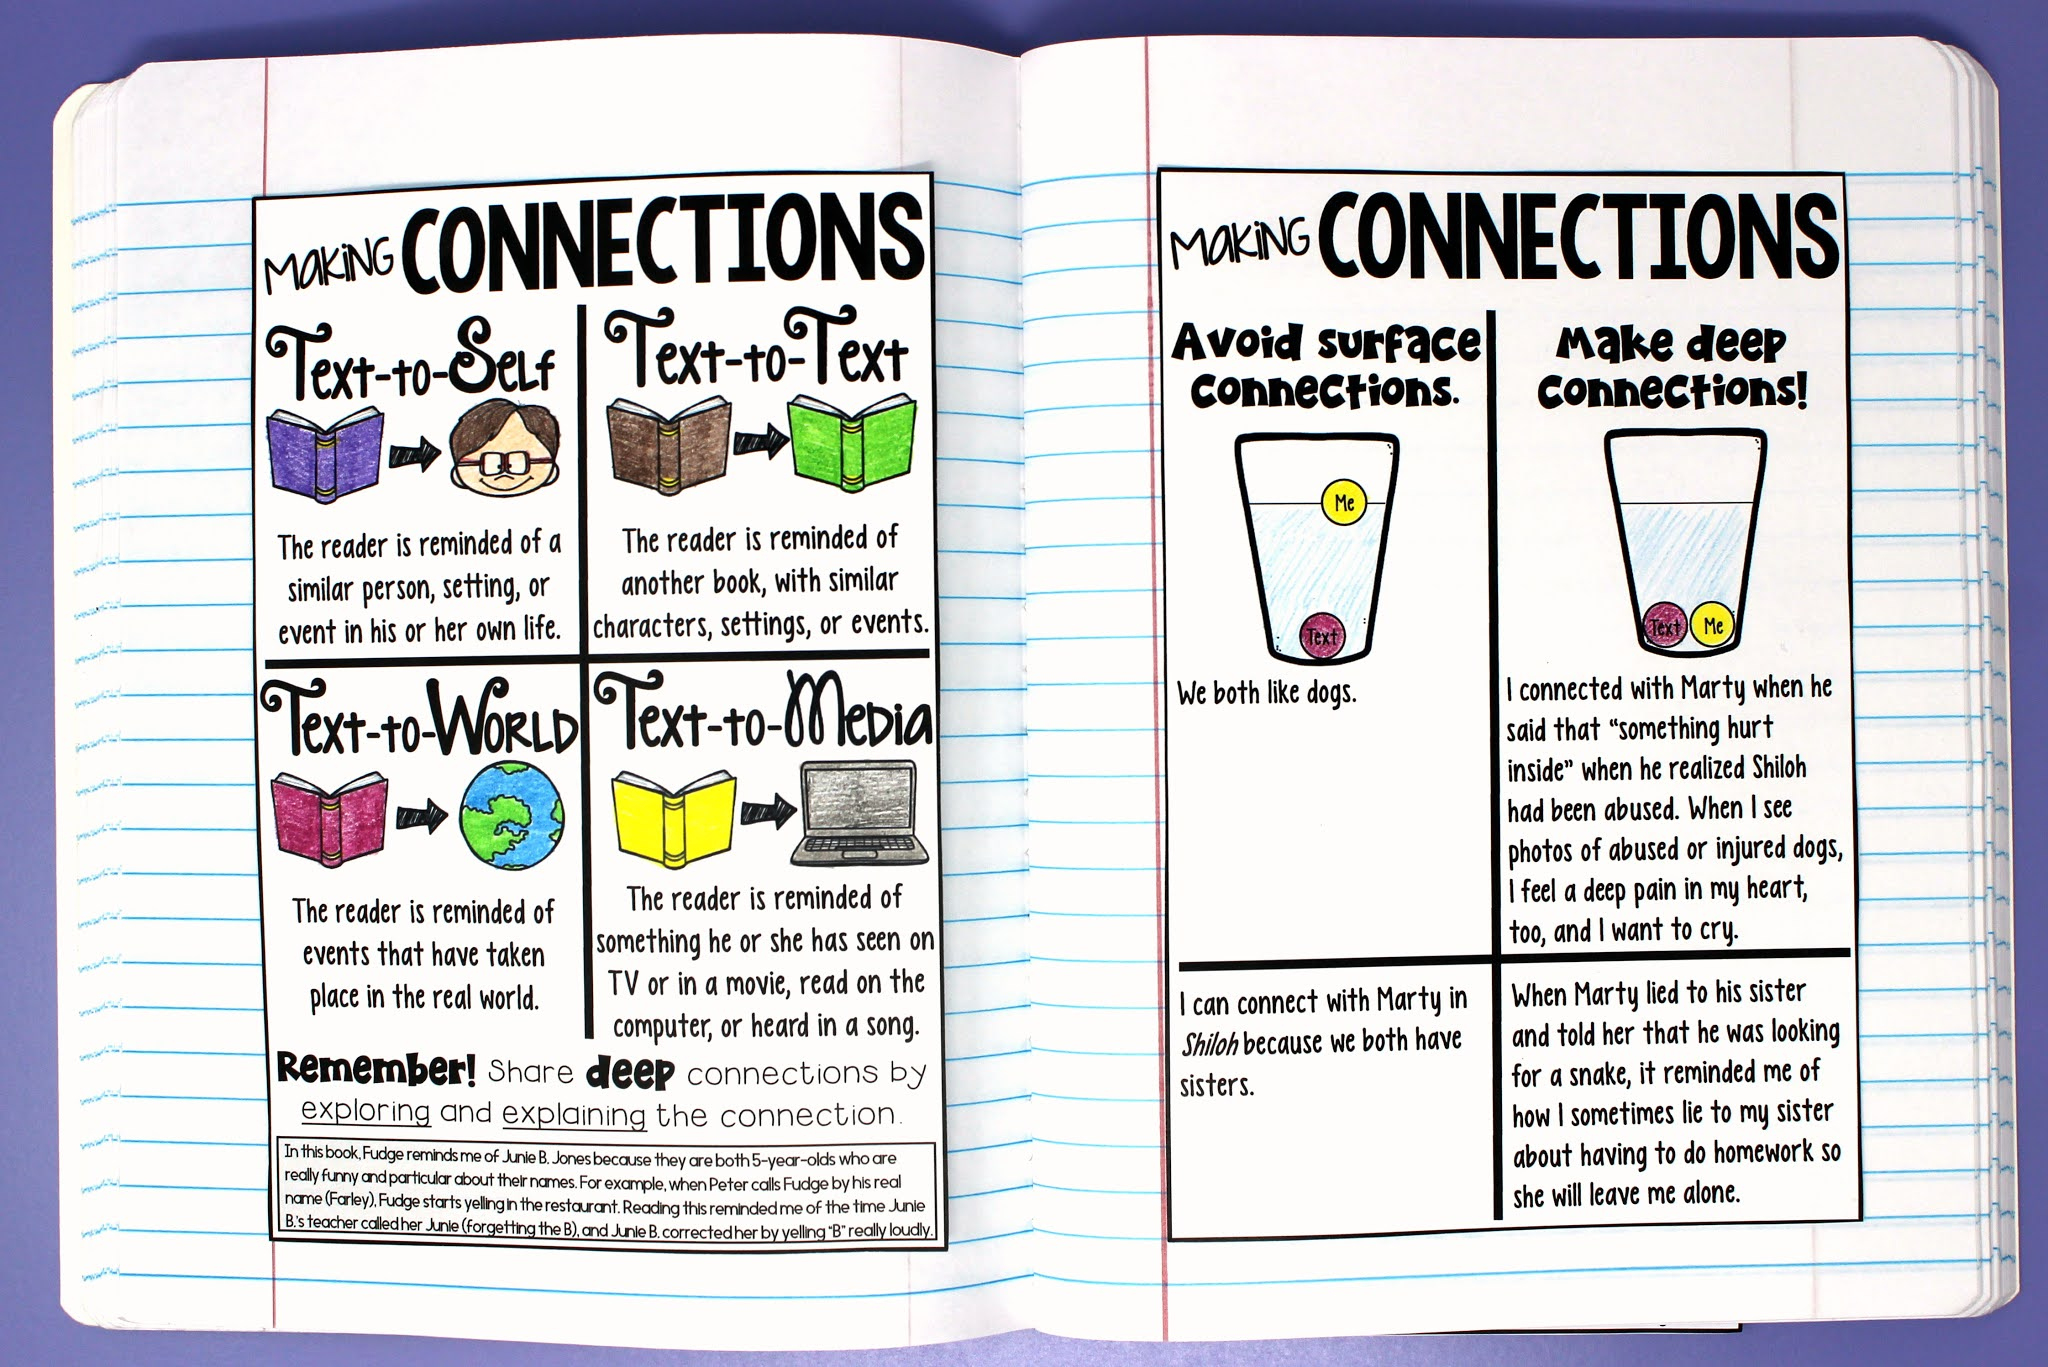 Making CONNECTIONS
Text-to-Self
The reader is reminded of a
similar person, setting, or
event in his or her own life.
Text-to-Text
The reader is reminded of
another book, with similar
characters, settings, or events.
Text-to-World
The reader is reminded of
events that have taken
place in the real world.
Text-to-Media
The reader is reminded of
something he or she has seen on
TV or in a movie, read on the
computer, or heard in a song.
Remember! Share deep connections by
exploring and explaining the connection.
In this book, Fudge reminds me of Junie B. Jones because they are both 5-year-olds who are
really funny and particular about their names. For example, when Peter calls Fudge by his real
name (Farley), Fudge starts yelling in the restaurant. Reading this reminded me of the time Junie
B.'s teacher called her Junie (forgetting the B), and Junie B. corrected her by yelling "B" really loudly.
Making CONNECTIONS
Avoid surface
connections.
Me
Text
We both like dogs.
Make deep
connections!
Text Me
I connected with Marty when he
said that "something hurt
inside" when he realized Shiloh
had been abused. When I see
photos of abused or injured dogs,
I feel a deep pain in my heart,
too, and I want to cry.
I can connect with Marty in
Shiloh because we both have
sisters.
When Marty lied to his sister
and told her that he was looking
for a snake, it reminded me of
how I sometimes lie to my sister
about having to do homework so
she will leave me alone.